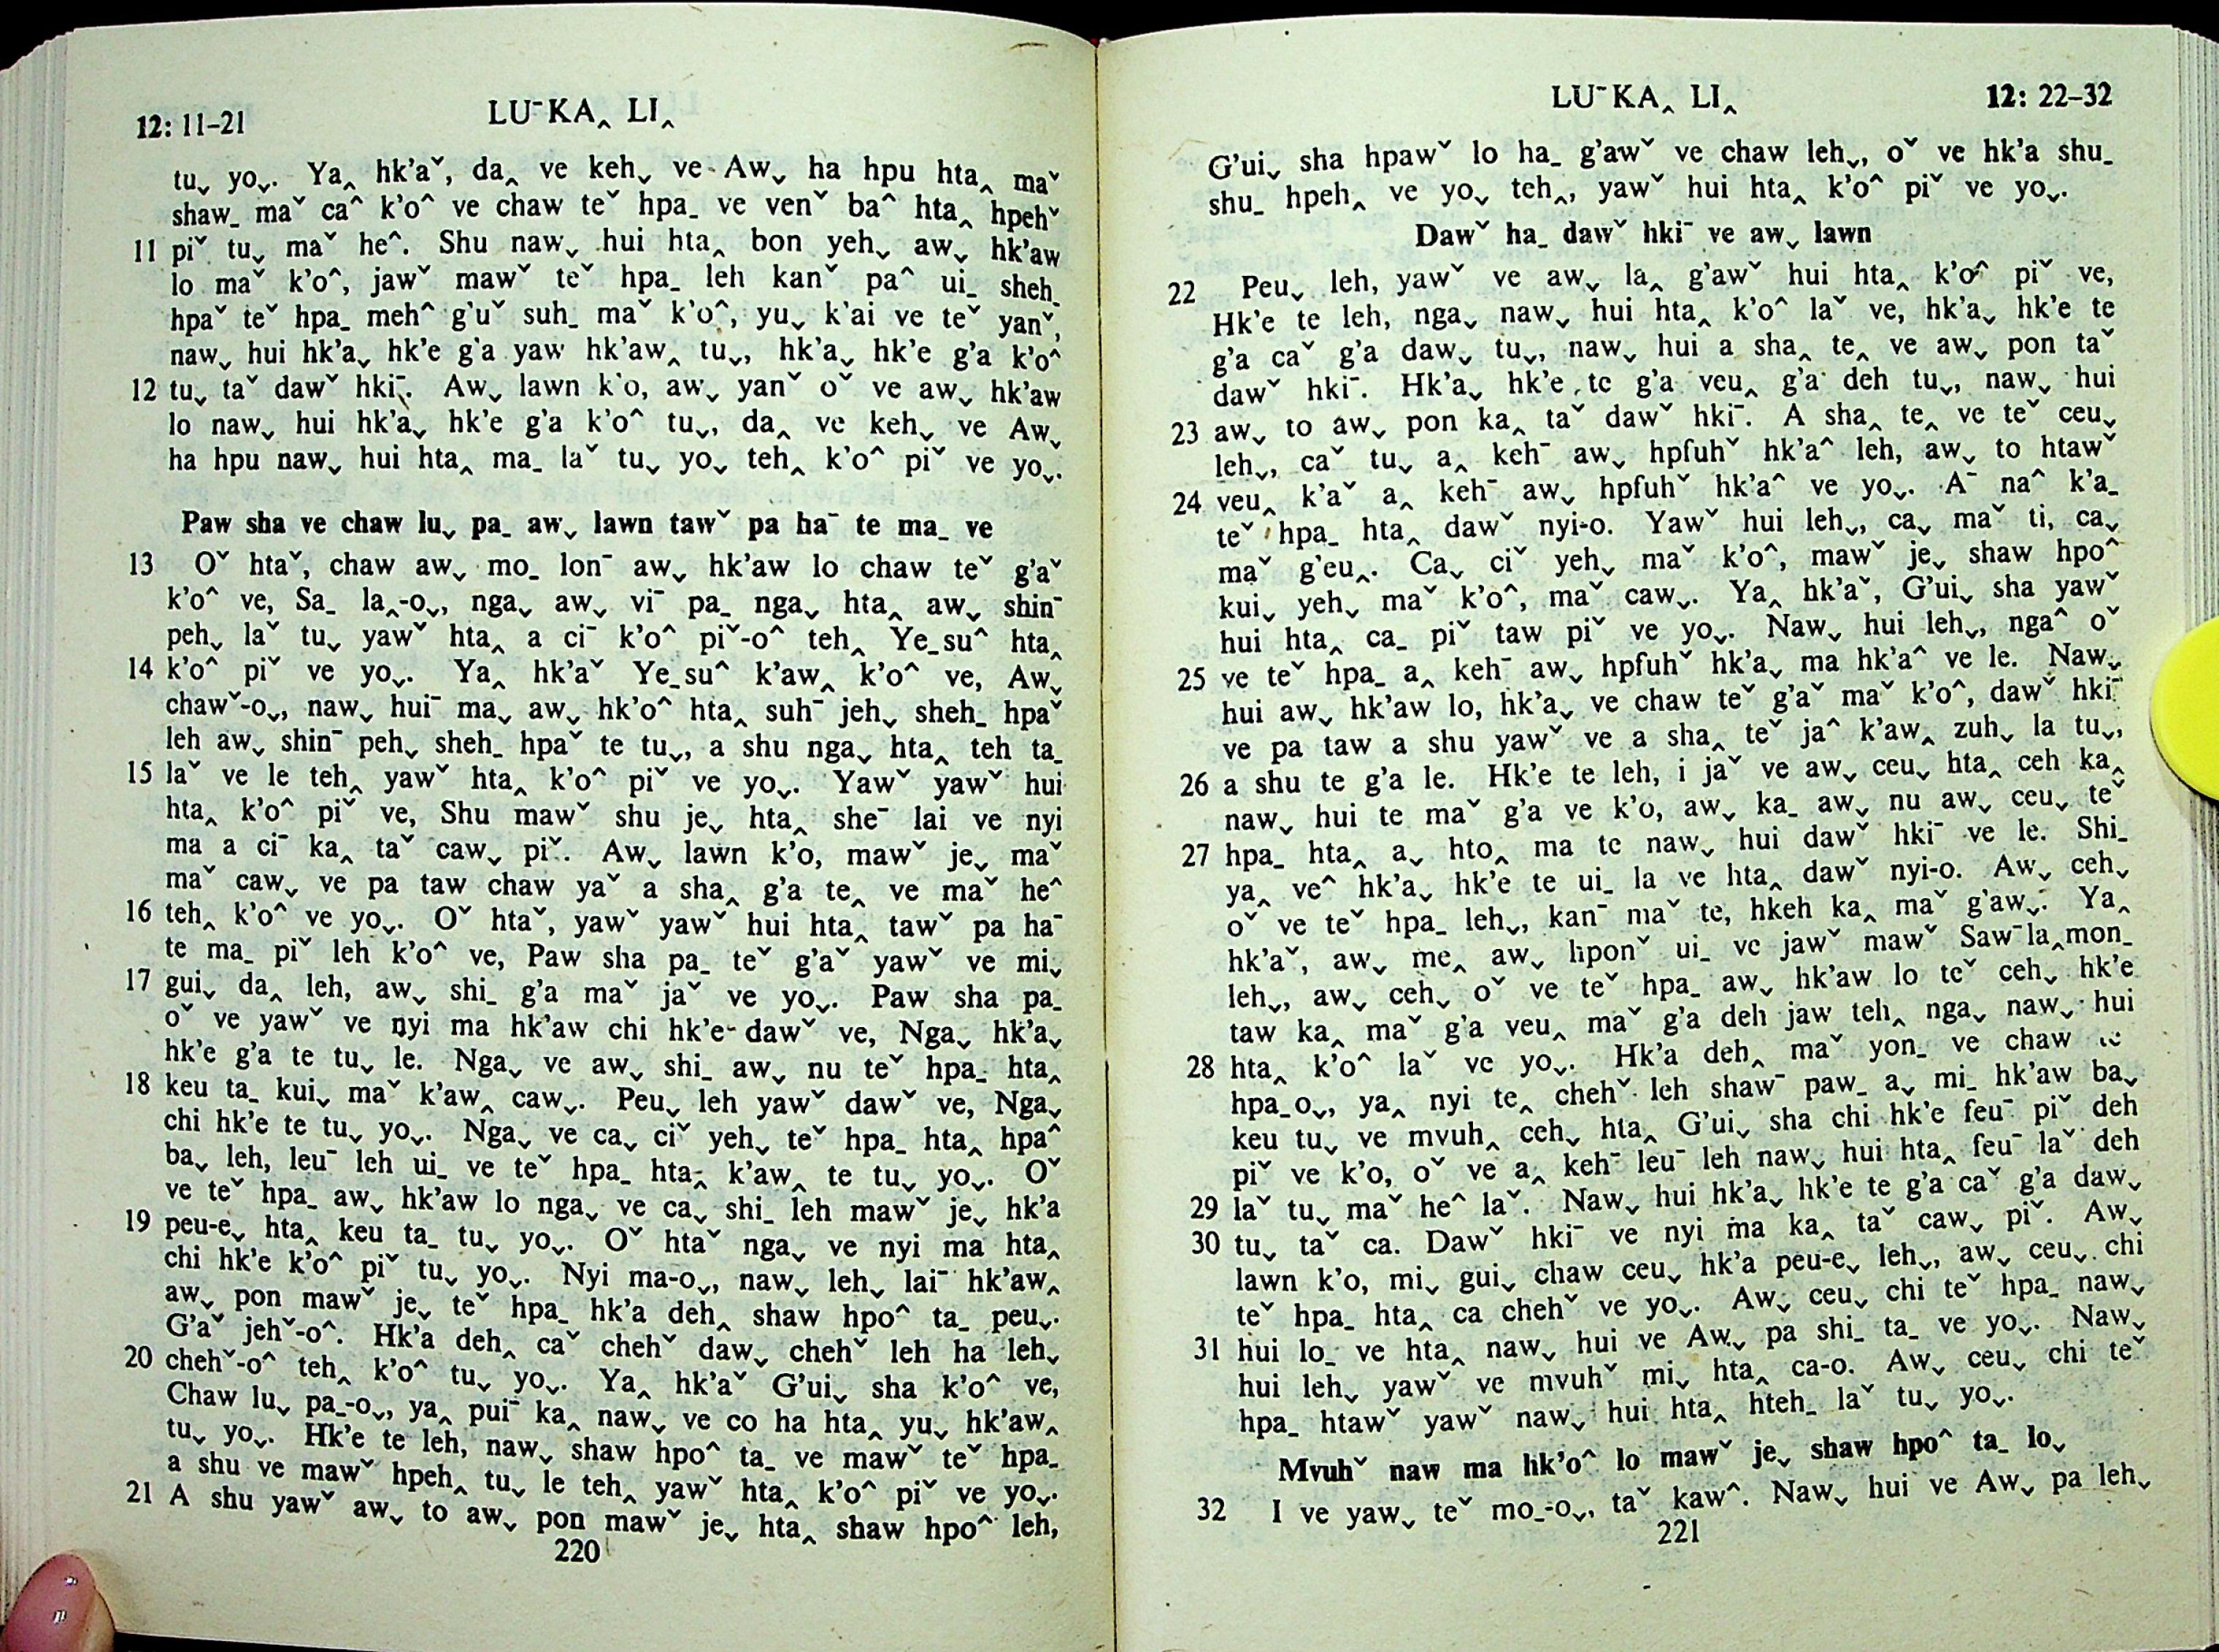 12: 11–21
LUˉKAꞈ LIꞈ
tuˬ yoˬ. Yaꞈ hk'aˇ, daꞈ ve kehˬ ve Awˬ ha hpu htaꞈ maˇ
shaw_ maˇ ca^ k'o^ ve chaw teˇ hpa_ ve venˇ ba^ htaꞈ hpehˇ
11 piˇ tuˬ maˇ he^. Shu nawˬ hui htaꞈ bon yehˬ awˬ hk'aw
lo maˇ k'o^, jawˇ mawˇ teˇ hpa_ leh kanˇ pa^ ui_ sheh_
hpaˇ teˇ hpa_ meh^ g'uˇ suh_ maˇ k'o^, yuˬ k'ai ve teˇ yanˇ,
nawˬ hui hk'aˬ hk'e g'a yaw hk'awꞈ tuˬ, hk'aˬ hk'e g'a k'o^
12 tuˬ taˇ dawˇ hkiˉ. Awˬ lawn k'o, awˬ yanˇ oˇ ve awˬ hk'aw
lo nawˬ hui hk'aˬ hk'e g'a k'o^ tuˬ, daꞈ ve kehˬ ve Awˬ
ha hpu nawˬ hui htaꞈ ma_ laˇ tuˬ yoˬ tehꞈ k'o^ piˇ ve yoˬ.
Paw sha ve chaw luˬ pa_ awˬ lawn tawˇ pa haˉ te ma_ ve
13 Oˇ htaˇ, chaw awˬ mo_ lonˉ awˬ hk'aw lo chaw teˇ g'aˇ
k'o^ ve, Sa_ laꞈ-oˬ, ngaˬ awˬ viˉ pa_ ngaˬ htaꞈ awˬ shinˉ
pehˬ laˇ tuˬ yawˇ htaꞈ a ciˉ k'o^ piˇ-o^ tehꞈ Ye_su^ htaꞈ
14 k'o^ piˇ ve yoˬ. Yaꞈ hk'aˇ Ye_su^ k'awꞈ k'o^ ve, Awˬ
chawˇ-oˬ, nawˬ huiˉ maˬ awˬ hk'o^ htaꞈ suhˉ jehˬ sheh_ hpaˇ
leh awˬ shinˉ pehˬ sheh_ hpaˇ te tuˬ, a shu ngaˬ htaꞈ teh ta_
15 laˇ ve le tehꞈ yawˇ htaꞈ k'o^ piˇ ve yoˬ. Yawˇ yawˇ hui
htaꞈ k'o^ piˇ ve, Shu mawˇ shu jeˬ htaꞈ sheˉ lai ve nyi
ma a ciˉ kaꞈ taˇ cawˬ piˇ. Awˬ lawn k'o, mawˇ jeˬ maˇ
maˇ cawˬ ve pa taw chaw yaˇ a shaꞈ g'a teꞈ ve maˇ he^
16 tehꞈ k'o^ ve yoˬ. Oˇ htaˇ, yawˇ yawˇ hui htaꞈ tawˇ pa haˉ
te ma_ piˇ leh k'o^ ve, Paw sha pa_ teˇ g'aˇ yawˇ ve miˬ
17 guiˬ daꞈ leh, awˬ shi_ g'a maˇ jaˇ ve yoˬ. Paw sha pa_
oˇ ve yawˇ ve nyi ma hk'aw chi hk'e dawˇ ve, Ngaˬ hk'aˬ
hk'e g'a te tuˬ le. Ngaˬ ve awˬ shi_ awˬ nu teˇ hpa_ htaꞈ
18 keu ta_ kuiˬ maˇ k'awꞈ cawˬ. Peuˬ leh yawˇ dawˇ ve, Ngaˬ
chi hk'e te tuˬ yoˬ. Ngaˬ ve caˬ ciˇ yehˬ teˇ hpa_ htaꞈ hpa^
baˬ leh, leuˉ leh ui_ ve teˇ hpa_ htaꞈ k'awꞈ te tuˬ yoˬ. Oˇ
ve teˇ hpa_ awˬ hk'aw lo ngaˬ ve caˬ shi_ leh mawˇ jeˬ hk'a
19 peu-eˬ htaꞈ keu ta_ tuˬ yoˬ. Oˇ htaˇ ngaˬ ve nyi ma htaꞈ
chi hk'e k'o^ piˇ tuˬ yoˬ. Nyi ma-oˬ, nawˬ lehˬ laiˉ hk'awꞈ
awˬ pon mawˇ jeˬ teˇ hpa_ hk'a dehꞈ shaw hpo^ ta_ peuˬ.
G'aˇ jehˇ-o^. Hk'a dehꞈ caˇ chehˇ dawˬ chehˇ leh ha lehˬ
20 chehˇ-o^ tehꞈ k'o^ tuˬ yoˬ. Yaꞈ hk'aˇ G'uiˬ sha k'o^ ve,
Chaw luˬ pa_-oˬ, yaꞈ puiˉ kaꞈ nawˬ ve co ha htaꞈ yuˬ hk'awꞈ
tuˬ yoˬ. Hk'e te leh, nawˬ shaw hpo^ ta_ ve mawˇ teˇ hpa_
a shu ve mawˇ hpehꞈ tuˬ le tehꞈ yawˇ htaꞈ k'o^ piˇ ve yoˬ.
21 A shu yawˇ awˬ to awˬ pon mawˇ jeˬ htaꞈ shaw hpo^ leh,
220
LUˉKAꞈ LIꞈ
12: 22–32
G'uiˬ sha hpawˇ lo ha_ g'awˇ ve chaw lehˬ, oˇ ve hk'a shu_
shu_ hpehꞈ ve yoˬ tehꞈ, yawˇ hui htaꞈ k'o^ piˇ ve yoˬ.
Dawˇ ha_ dawˇ hkiˉ ve awˬ lawn
22 Peuˬ leh, yawˇ ve awˬ laꞈ g'awˇ hui htaꞈ k'o^ piˇ ve,
Hk'e te leh, ngaˬ nawˬ hui htaꞈ k'o^ laˇ ve, hk'aˬ hk'e te
g'a caˇ g'a dawˬ tuˬ, nawˬ hui a shaꞈ teꞈ ve awˬ pon taˇ
dawˇ hkiˉ. Hk'aˬ hk'e te g'a veuꞈ g'a deh tuˬ, nawˬ hui
23 awˬ to awˬ pon kaꞈ taˇ dawˇ hkiˉ. A shaꞈ teꞈ ve teˇ ceuˬ
lehˬ, caˇ tuˬ aꞈ kehˉ awˬ hpfuhˇ hk'a^ leh, awˬ to htawˇ
24 veuꞈ k'aˇ aꞈ kehˉ awˬ hpfuhˇ hk'a^ ve yoˬ. Aˉ na^ k'a_
teˇ hpa_ htaꞈ dawˇ nyi-o. Yawˇ hui lehˬ, caˬ maˇ ti, caˬ
maˇ g'euꞈ. Caˬ ciˇ yehˬ maˇ k'o^, mawˇ jeˬ shaw hpo^
kuiˬ yehˬ maˇ k'o^, maˇ cawˬ. Yaꞈ hk'aˇ, G'uiˬ sha yawˇ
hui htaꞈ ca_ piˇ taw piˇ ve yoˬ. Nawˬ hui lehˬ, nga^ oˇ
25 ve teˇ hpa_ aꞈ kehˉ awˬ hpfuhˇ hk'aˬ ma hk'a^ ve le. Nawˬ
hui awˬ hk'aw lo, hk'aˬ ve chaw teˇ g'aˇ maˇ k'o^, dawˇ hkiˉ
ve pa taw a shu yawˇ ve a shaꞈ teˇ ja^ k'awꞈ zuhˬ la tuˬ,
26 a shu te g'a le. Hk'e te leh, i jaˇ ve awˬ ceuˬ htaꞈ ceh kaꞈ
nawˬ hui te maˇ g'a ve k'o, awˬ ka_ awˬ nu awˬ ceuˬ teˇ
27 hpa_ htaꞈ aˬ htoꞈ ma te nawˬ hui dawˇ hkiˉ ve le. Shi_
yaꞈ ve^ hk'aˬ hk'e te ui_ la ve htaꞈ dawˇ nyi-o. Awˬ cehˬ
oˇ ve teˇ hpa_ lehˬ, kanˉ maˇ te, hkeh kaꞈ maˇ g'awˬ. Yaꞈ
hk'aˇ, awˬ meꞈ awˬ hponˇ ui_ ve jawˇ mawˇ Sawˉlaꞈmon_
lehˬ, awˬ cehˬ oˇ ve teˇ hpa_ awˬ hk'aw lo teˇ cehˬ hk'e
taw kaꞈ maˇ g'a veuꞈ maˇ g'a deh jaw tehꞈ ngaˬ nawˬ hui
28 htaꞈ k'o^ laˇ ve yoˬ. Hk'a dehꞈ maˇ yon_ ve chaw
hpa_oˬ, yaꞈ nyi teꞈ chehˇ leh shawˉ paw_ aˬ mi_ hk'aw baˬ
keu tuˬ ve mvuhꞈ cehˬ htaꞈ G'uiˬ sha chi hk'e feuˉ piˇ deh
piˇ ve k'o, oˇ ve aꞈ kehˉ leuˉ leh nawˬ hui htaꞈ feuˉ laˇ deh
29 laˇ tuˬ maˇ he^ laˇ. Nawˬ hui hk'aˬ hk'e te g'a caˇ g'a dawˬ
30 tuˬ taˇ ca. Dawˇ hkiˉ ve nyi ma kaꞈ taˇ cawˬ piˇ. Awˬ
lawn k'o, miˬ guiˬ chaw ceuˬ hk'a peu-eˬ lehˬ, awˬ ceuˬ chi
teˇ hpa_ htaꞈ ca chehˇ ve yoˬ. Awˬ ceuˬ chi teˇ hpa_ nawˬ
31 hui lo_ ve htaꞈ nawˬ hui ve Awˬ pa shi_ ta_ ve yoˬ. Nawˬ
hui lehˬ yawˇ ve mvuhˇ miˬ htaꞈ ca-o. Awˬ ceuˬ chi teˇ
hpa_ htawˇ yawˇ nawˬ hui htaꞈ hteh_ laˇ tuˬ yoˬ.
Mvuhˇ naw ma hk'o^ lo mawˇ jeˬ shaw hpo^ ta_ loˬ
32 I ve yawˬ teˇ mo_-oˬ, taˇ kaw^. Nawˬ hui ve Awˬ pa lehˬ
221